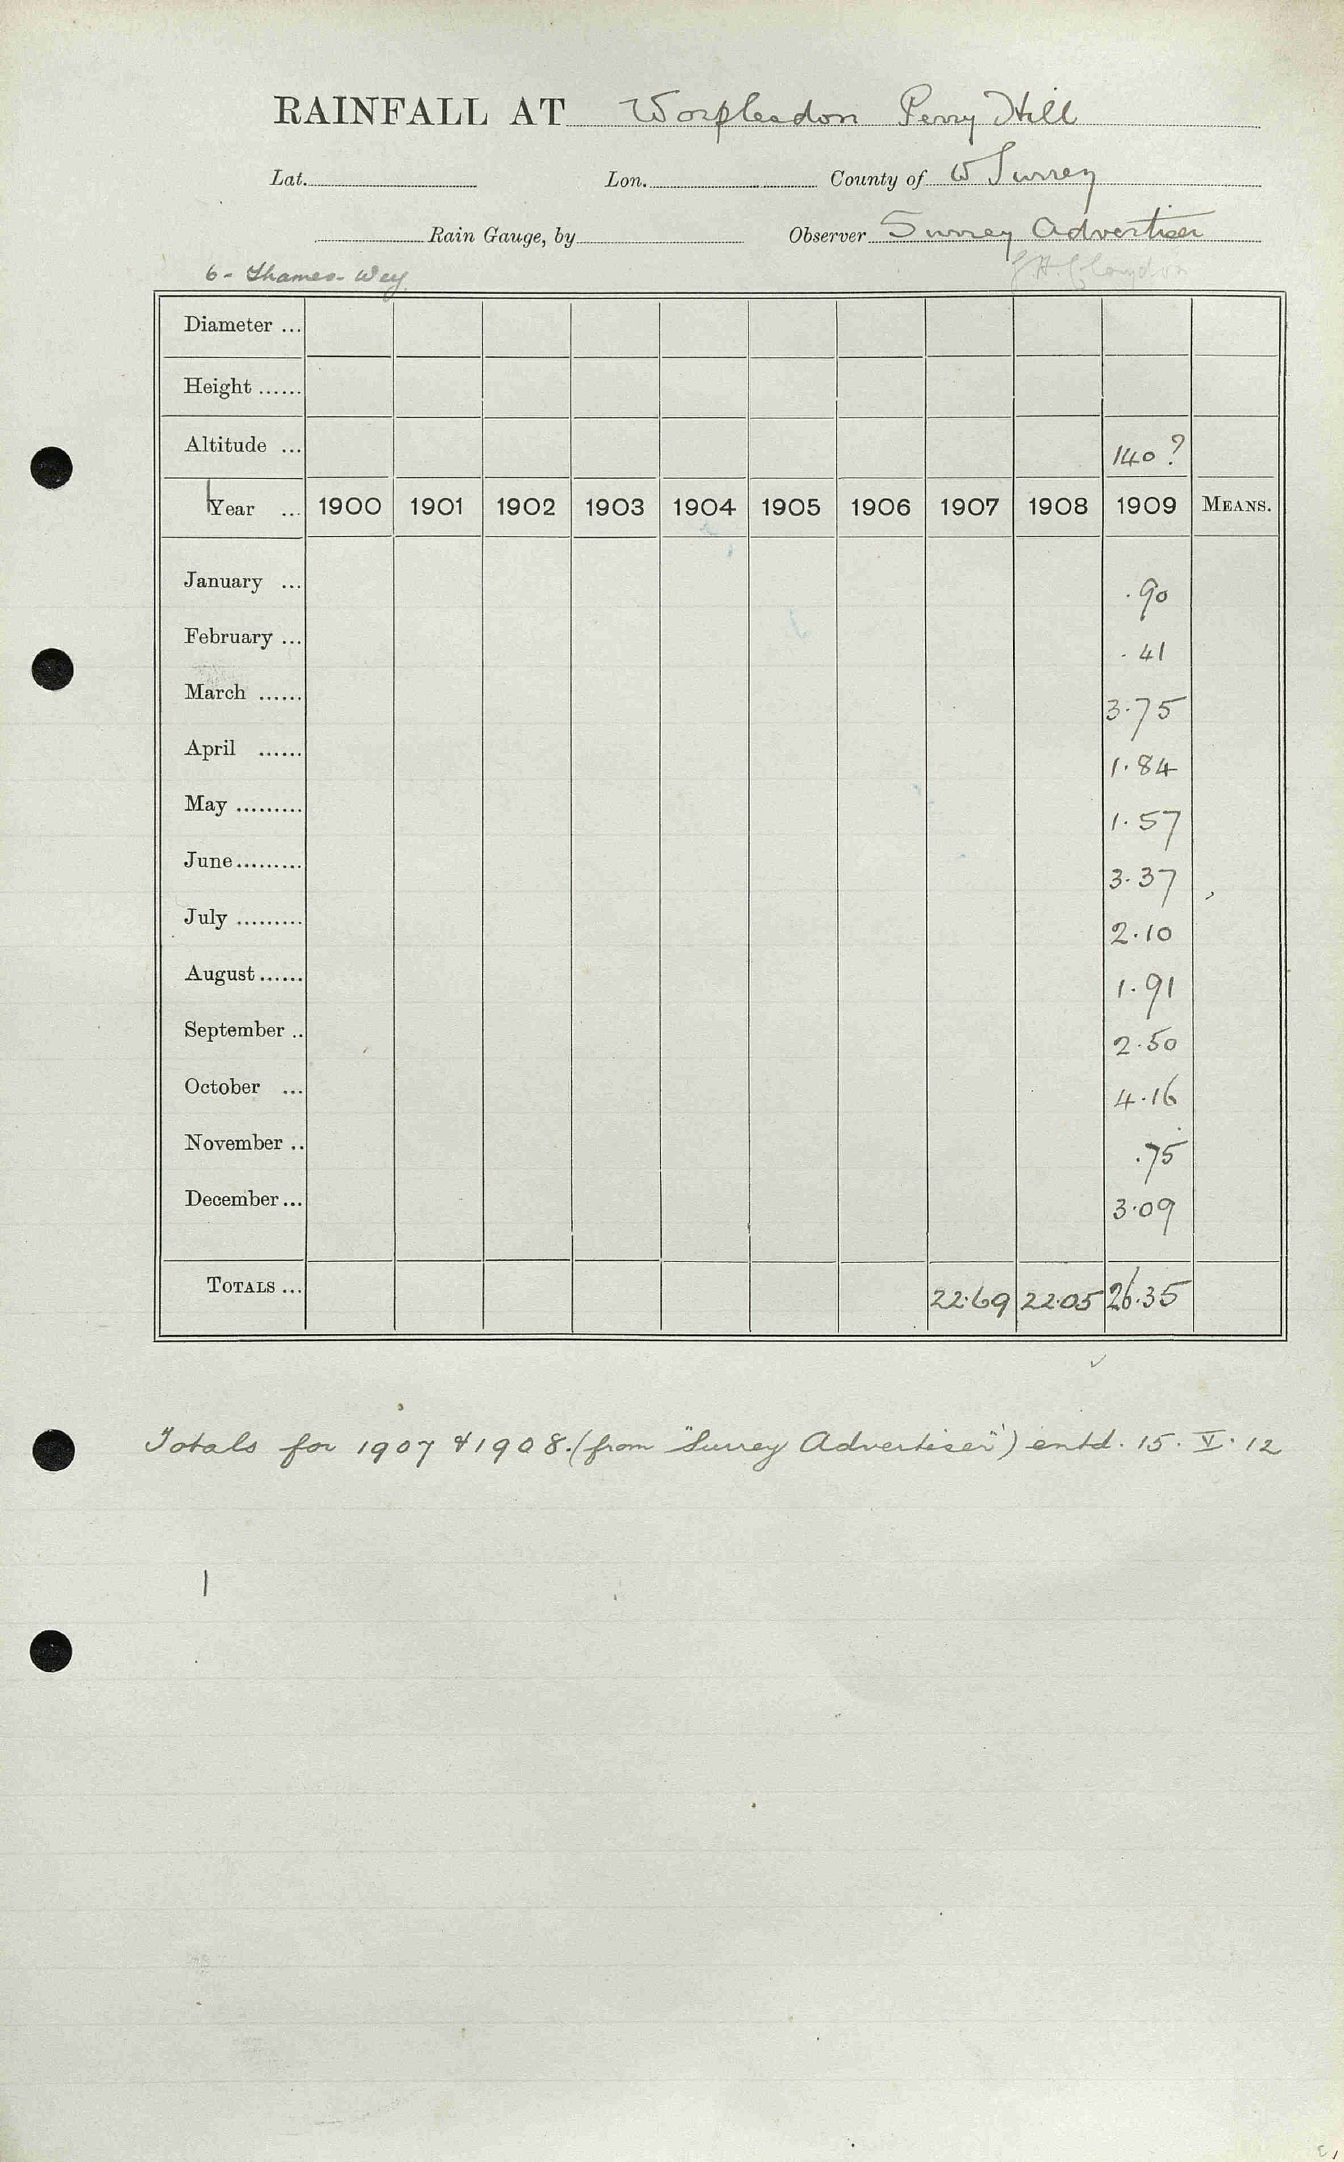 RAINFALL AT Worplesdon Perry Hill
Lat. Lon. County of W Surrey
Rain Gauge, by Observer Surrey Advertiser
6 - Thames - Wey
Diameter ...
Height ......
Altitude ... 140 ?
Year ... 1900 1901 1902 1903 1904 1905 1906 1907 1908 1909 MEANS.
January ... .90
February ... .41
March ...... 3.75
April ...... 1.84
May ......... 1.57
June ......... 3.37
July ......... 2.10
August ...... 1.91
September .. 2.50
October ... 4.16
November .. .75
December ... 3.09
TOTALS ... 22.69 22.05 26.35
Totals for 1907 & 1908. (from "Surrey Advertiser") entd. 15. V. 12